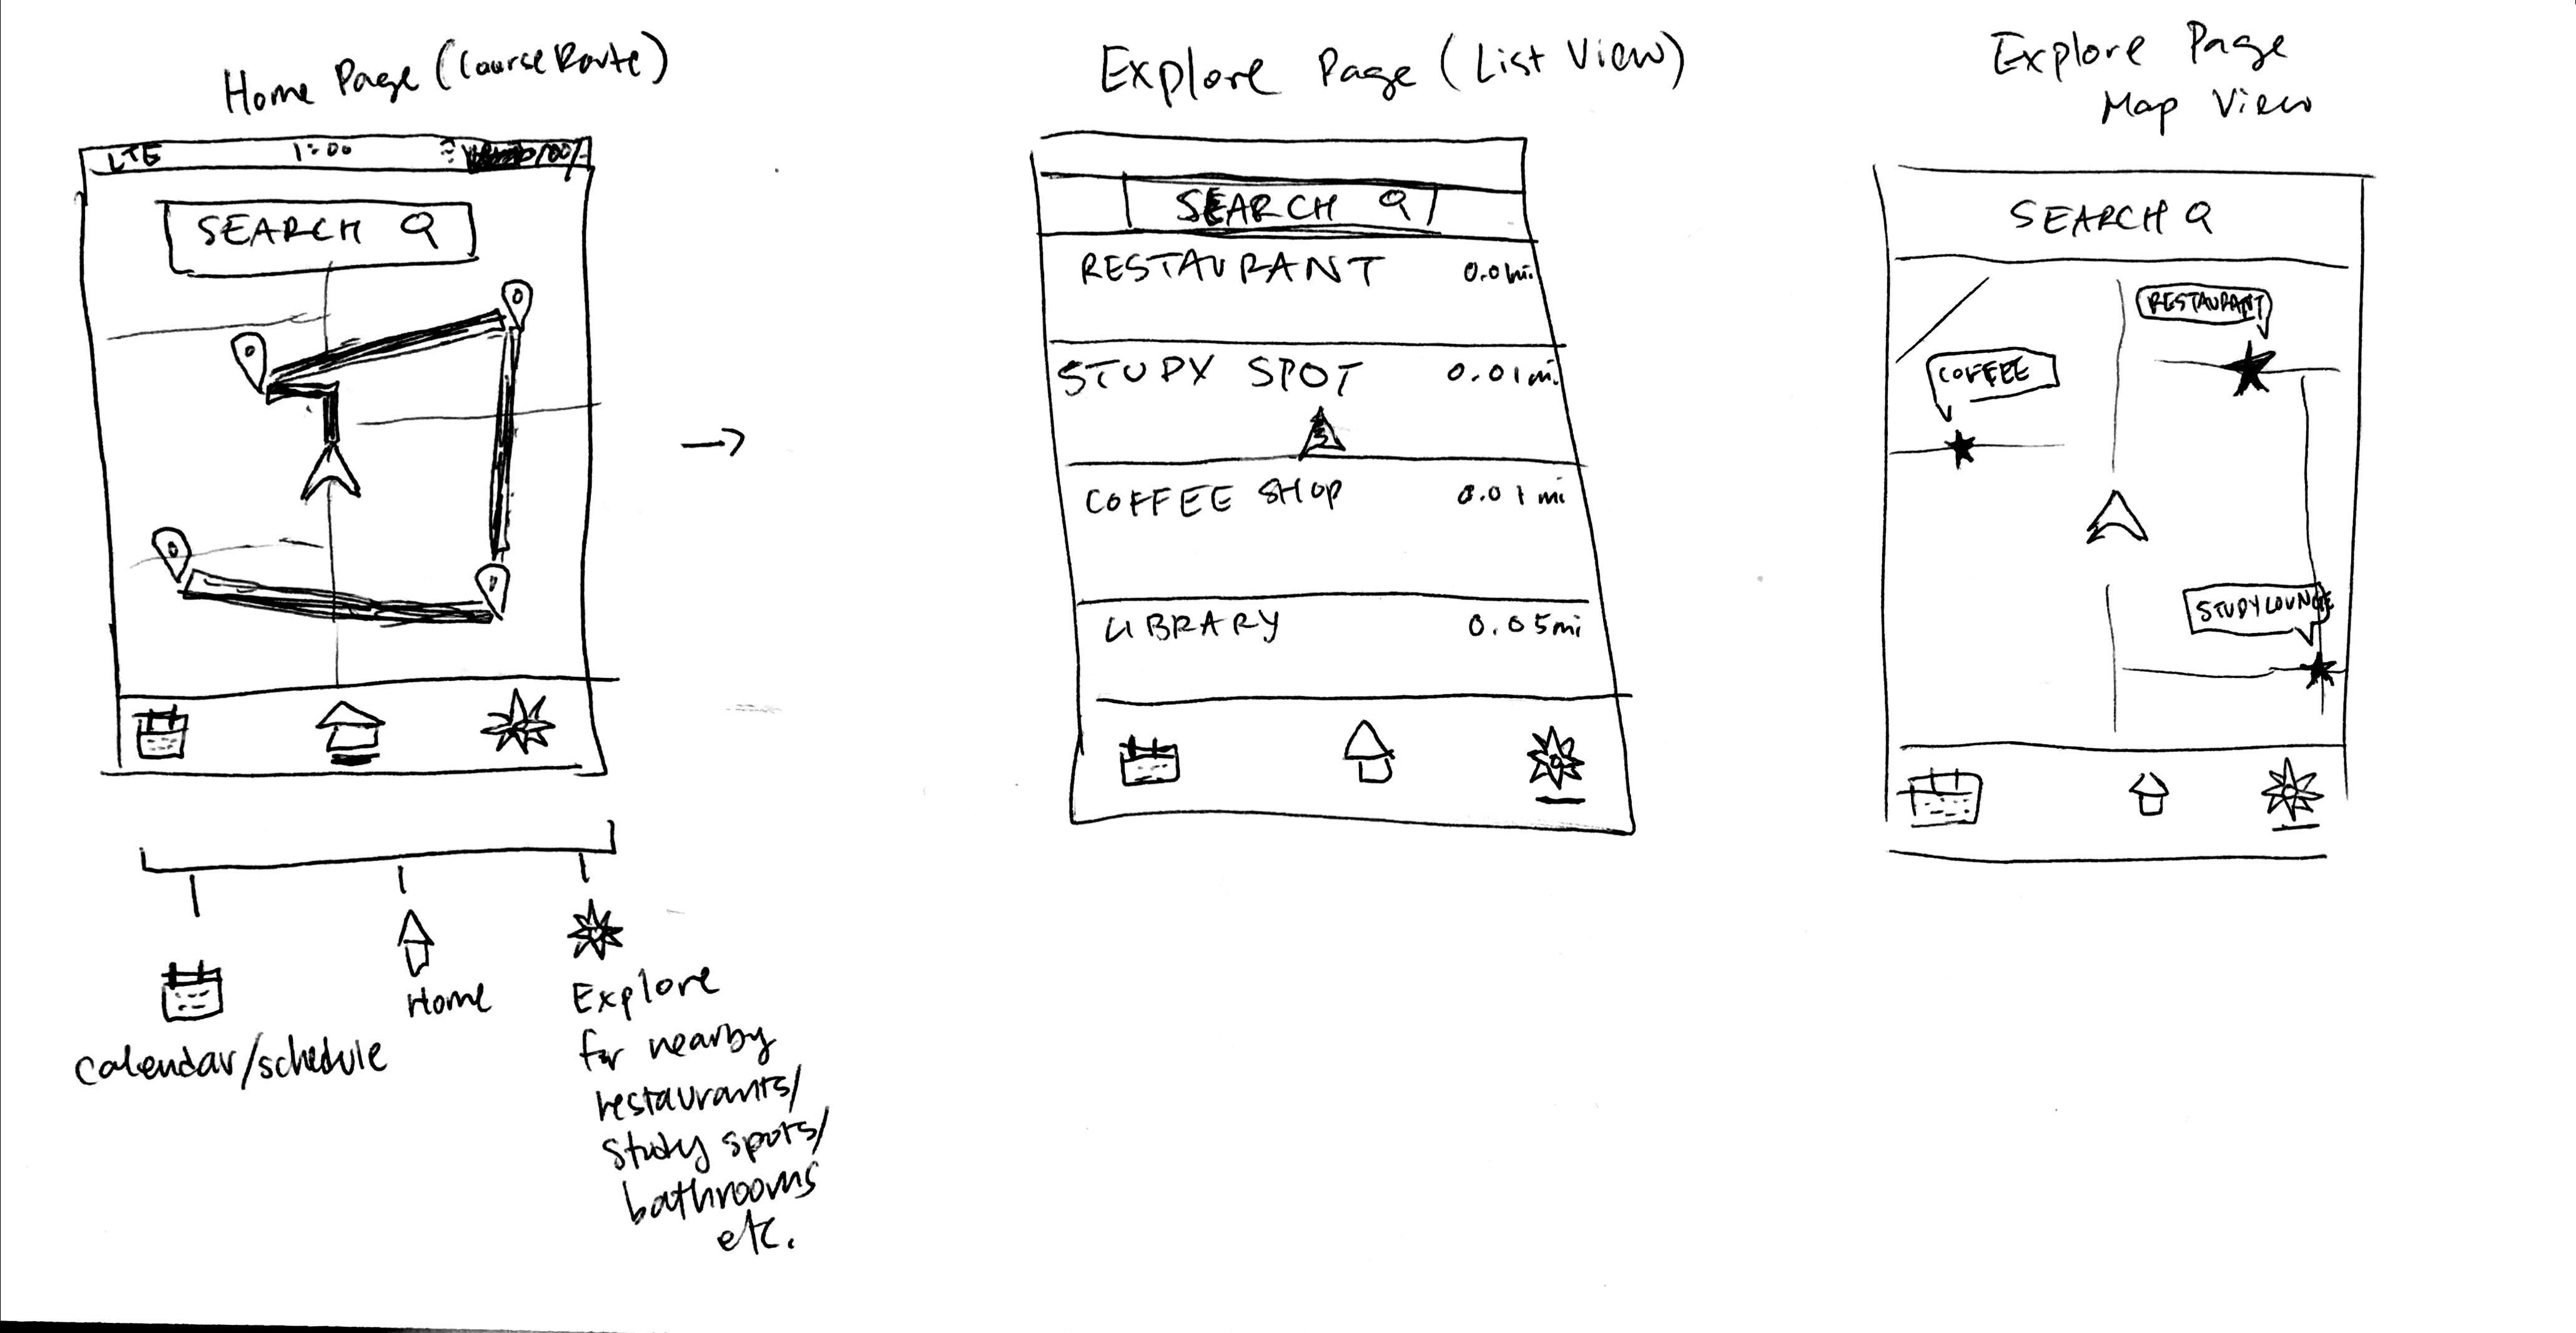 Home Page (Course Route)
LTE 1:00 100%
SEARCH
Calendar/schedule
Home
Explore
for nearby
restaurants/
study spots/
bathrooms
etc.
Explore Page (List View)
SEARCH
RESTAURANT 0.01mi.
STUDY SPOT 0.01mi.
COFFEE SHOP 0.01 mi
LIBRARY 0.05mi
Explore Page
Map View
SEARCH
RESTAURANT
COFFEE
STUDY LOUNGE